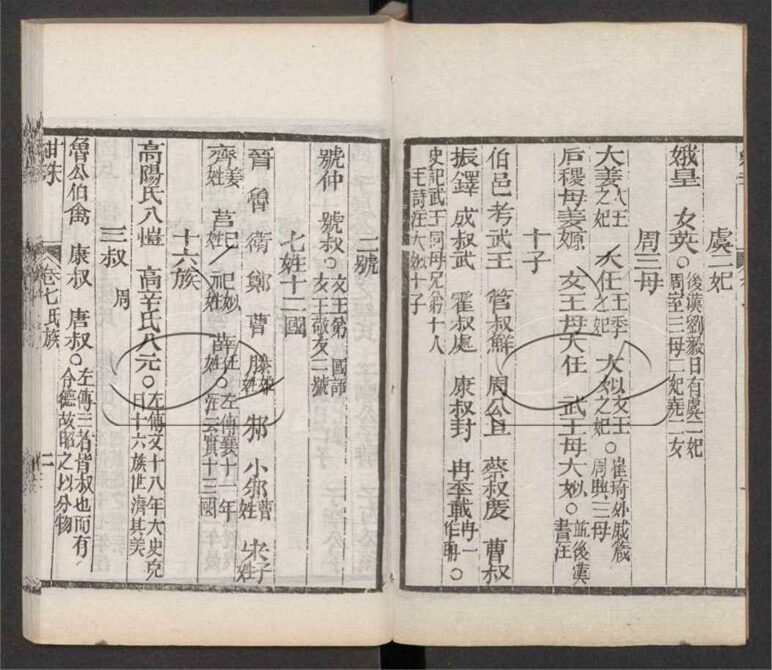 虞二妃
娥皇 女英○後漢劉毅曰有虞二妃
周室三母二妃堯二女
周三母
大姜大王之妃 大任王季之妃 大姒文王之妃○崔琦外戚箴周興三母
后稷母姜嫄 文王母大任 武王母大姒○並後漢書注
十子
伯邑考武王 管叔鮮 周公旦 蔡叔度 曹叔
振鐸 成叔武 霍叔處 康叔封 冉季載冉一作○
史記武王同母兄弟十人
毛詩注大姒十子
二虢
虢仲 虢叔○文王弟 國語文王敬友二虢
七姓十二國
晉 魯 衛 鄭 曹 滕姬姓 邾 小邾曹姓 宋子姓
齊姜姓 莒己姓 杞姒姓 薛任姓○左傳襄十一年注云實十三國
十六族
高陽氏八愷 高辛氏八元○左傳文十八年大史克曰十六族世濟其美
三叔周
魯公伯禽 康叔 唐叔○左傳三者皆叔也而有令德故昭之以分物
紺珠 卷七氏族 二